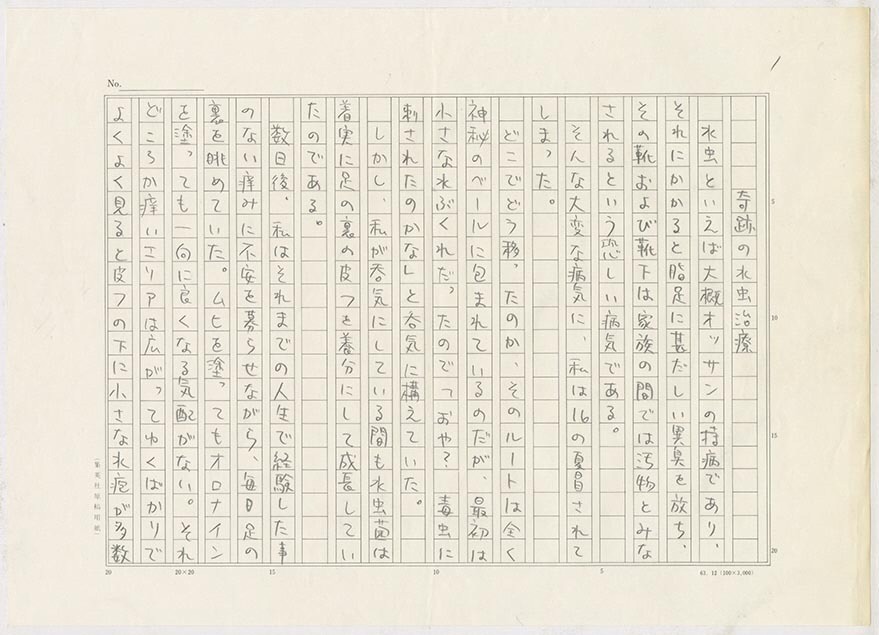 1
No.
奇跡の水虫治療
水虫といえば大概オッサンの持病であり、
それにかかると脂足に甚だしい異臭を放ち、
その靴および靴下は家族の間では汚物とみな
されるという恐しい病気である。
そんな大変な病気に、私は16の夏冒されて
しまった。
どこでどう移ったのか、そのルートは全く
神秘のベールに包まれているのだが、最初は
小さな水ぶくれだったので「おや？毒虫に
刺されたのかな」と呑気に構えていた。
しかし、私が呑気にしている間も水虫菌は
着実に足の裏の皮フを養分にして成長してい
たのである。
数日後、私はそれまでの人生で経験した事
のない痒みに不安を募らせながら、毎日足の
裏を眺めていた。ムヒを塗ってもオロナイン
を塗っても一向に良くなる気配がない。それ
どころか痒いエリアは広がってゆくばかりで
よくよく見ると皮フの下に小さな水疱が多数
5
10
15
20
20
20×20
15
10
5
63. 12 (100×3,000)
(集英社原稿用紙)